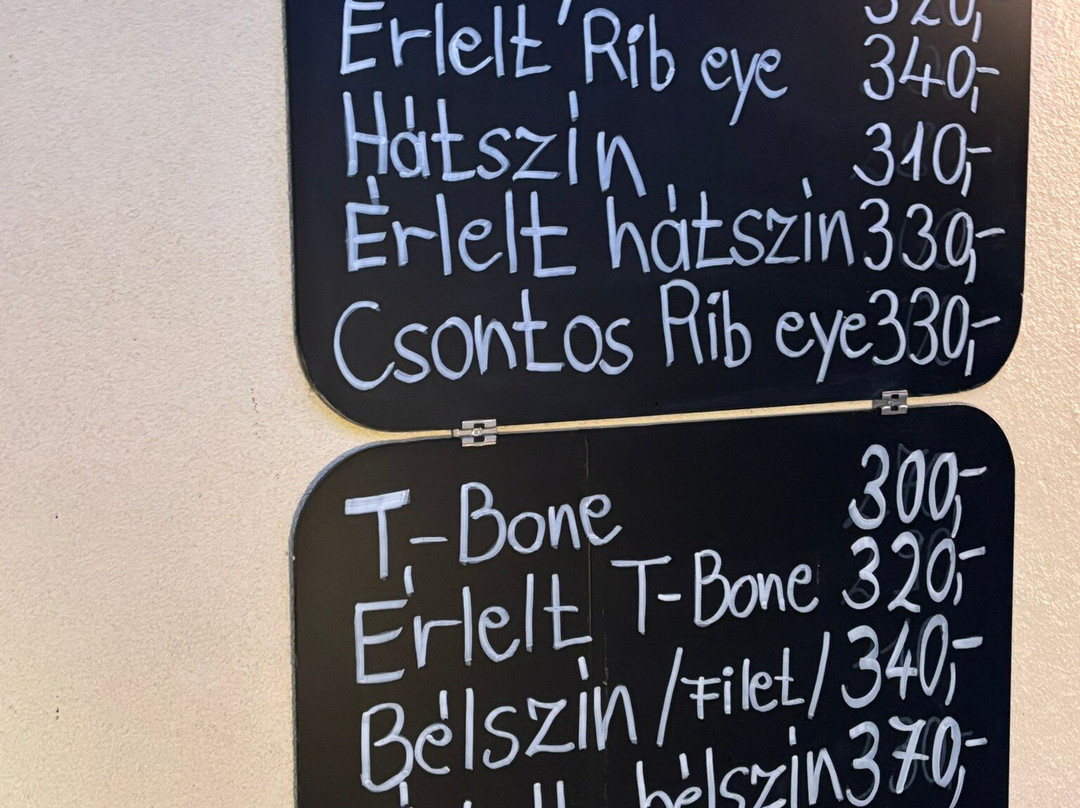 320,-
Érlelt Rib eye 340,-
Hátszín 310,-
Érlelt hátszín 330,-
Csontos Rib eye 330,-
T-Bone 300,-
Érlelt T-Bone 320,-
Bélszín /Filet/ 340,-
bélszín 370,-